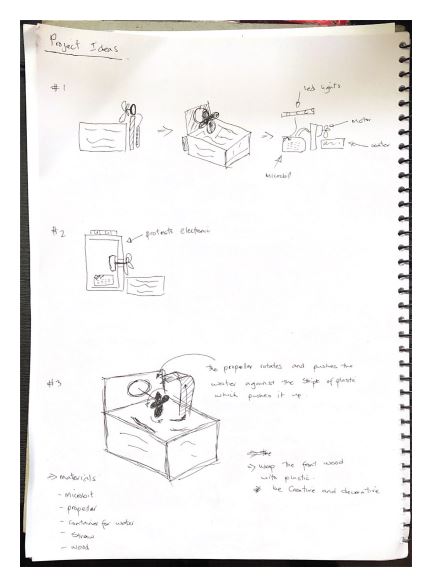 Project Ideas
#1
Led lights
Motor
water
Microbit
#2
protects electronic
#3
the propeller rotates and pushes the
water against the strips of plastic
which pushes it up
→ materials
- microbit
- propeller
- container for water
- straw
- wood
→ wrap the front wood
with plastic.
* be creative and decorative